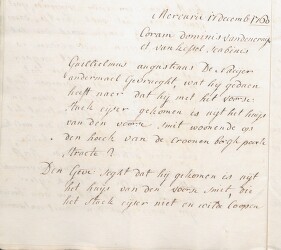 Mercurii 17 decemb 1760
Coram dominis vandencruyce
et van kessel scabinis
Guillielmus augustinus De
vandermael Gevraeght, wat hij gedaen
heeft naer dat hij met het voors:
stuck eyser gekomen is uyt het huys
van den voors: smit woonende op
den hoeck van de Croonen borgh poorte
straete ?
Den Geve: seght dat hij gekomen is uyt
het huys van den voors: smit, die
het stuck eyser niet en wilde Coopen